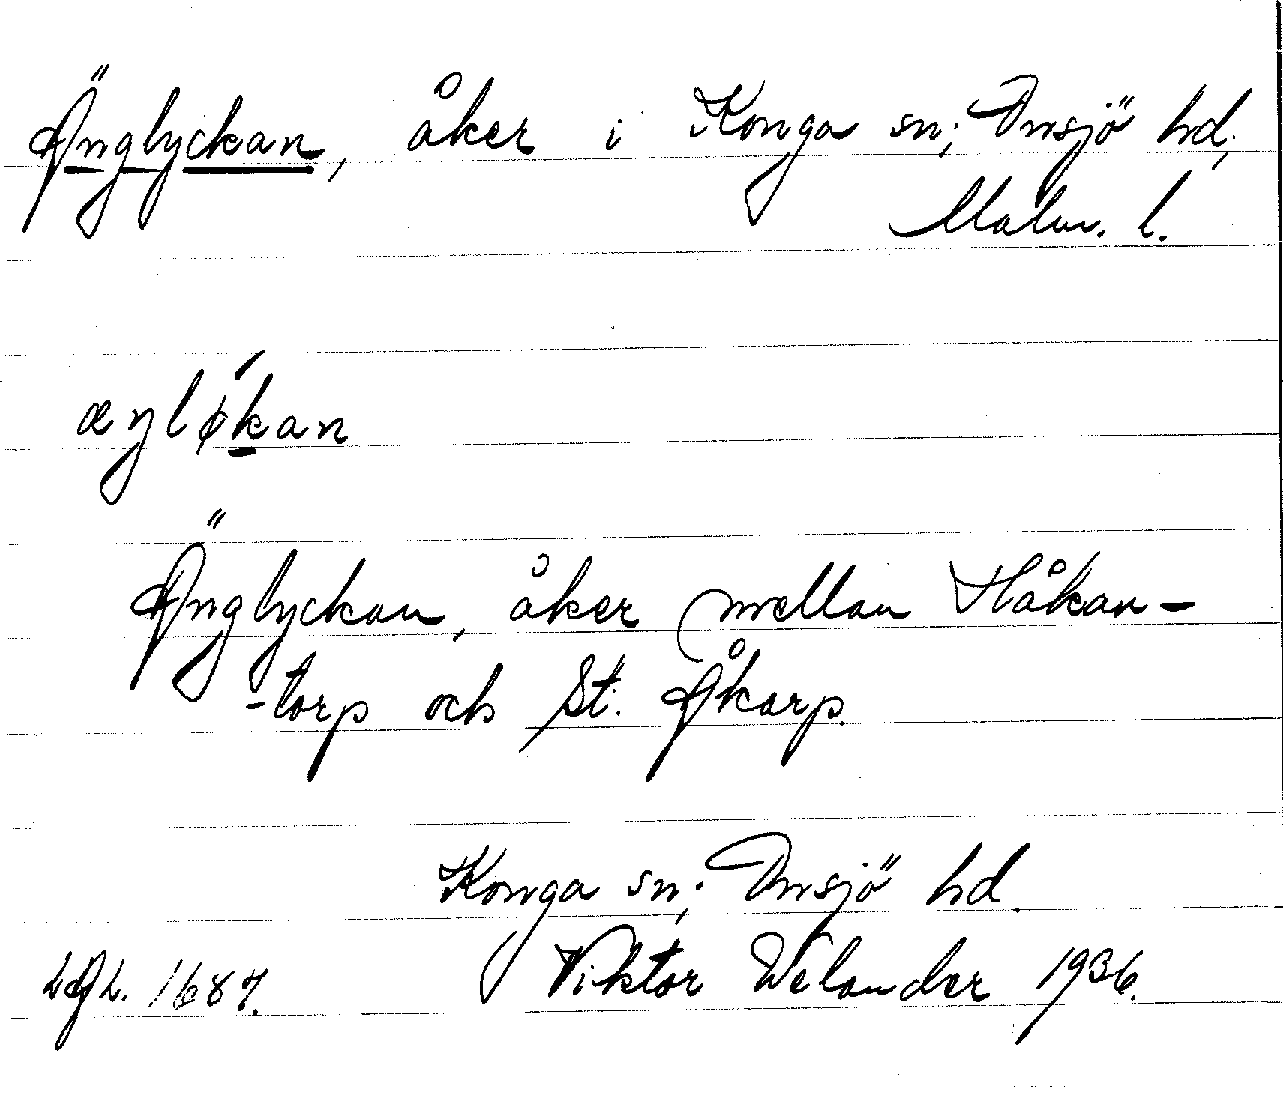 Änglyckan, åker i Konga sn; Onsjö hd;
Malm. l.
æŋløkan
Änglyckan, åker mellan Håkan-
-torp och St. Åkarp.
Konga sn; Onsjö hd.
LAL. 1687. Viktor Welander 1936.